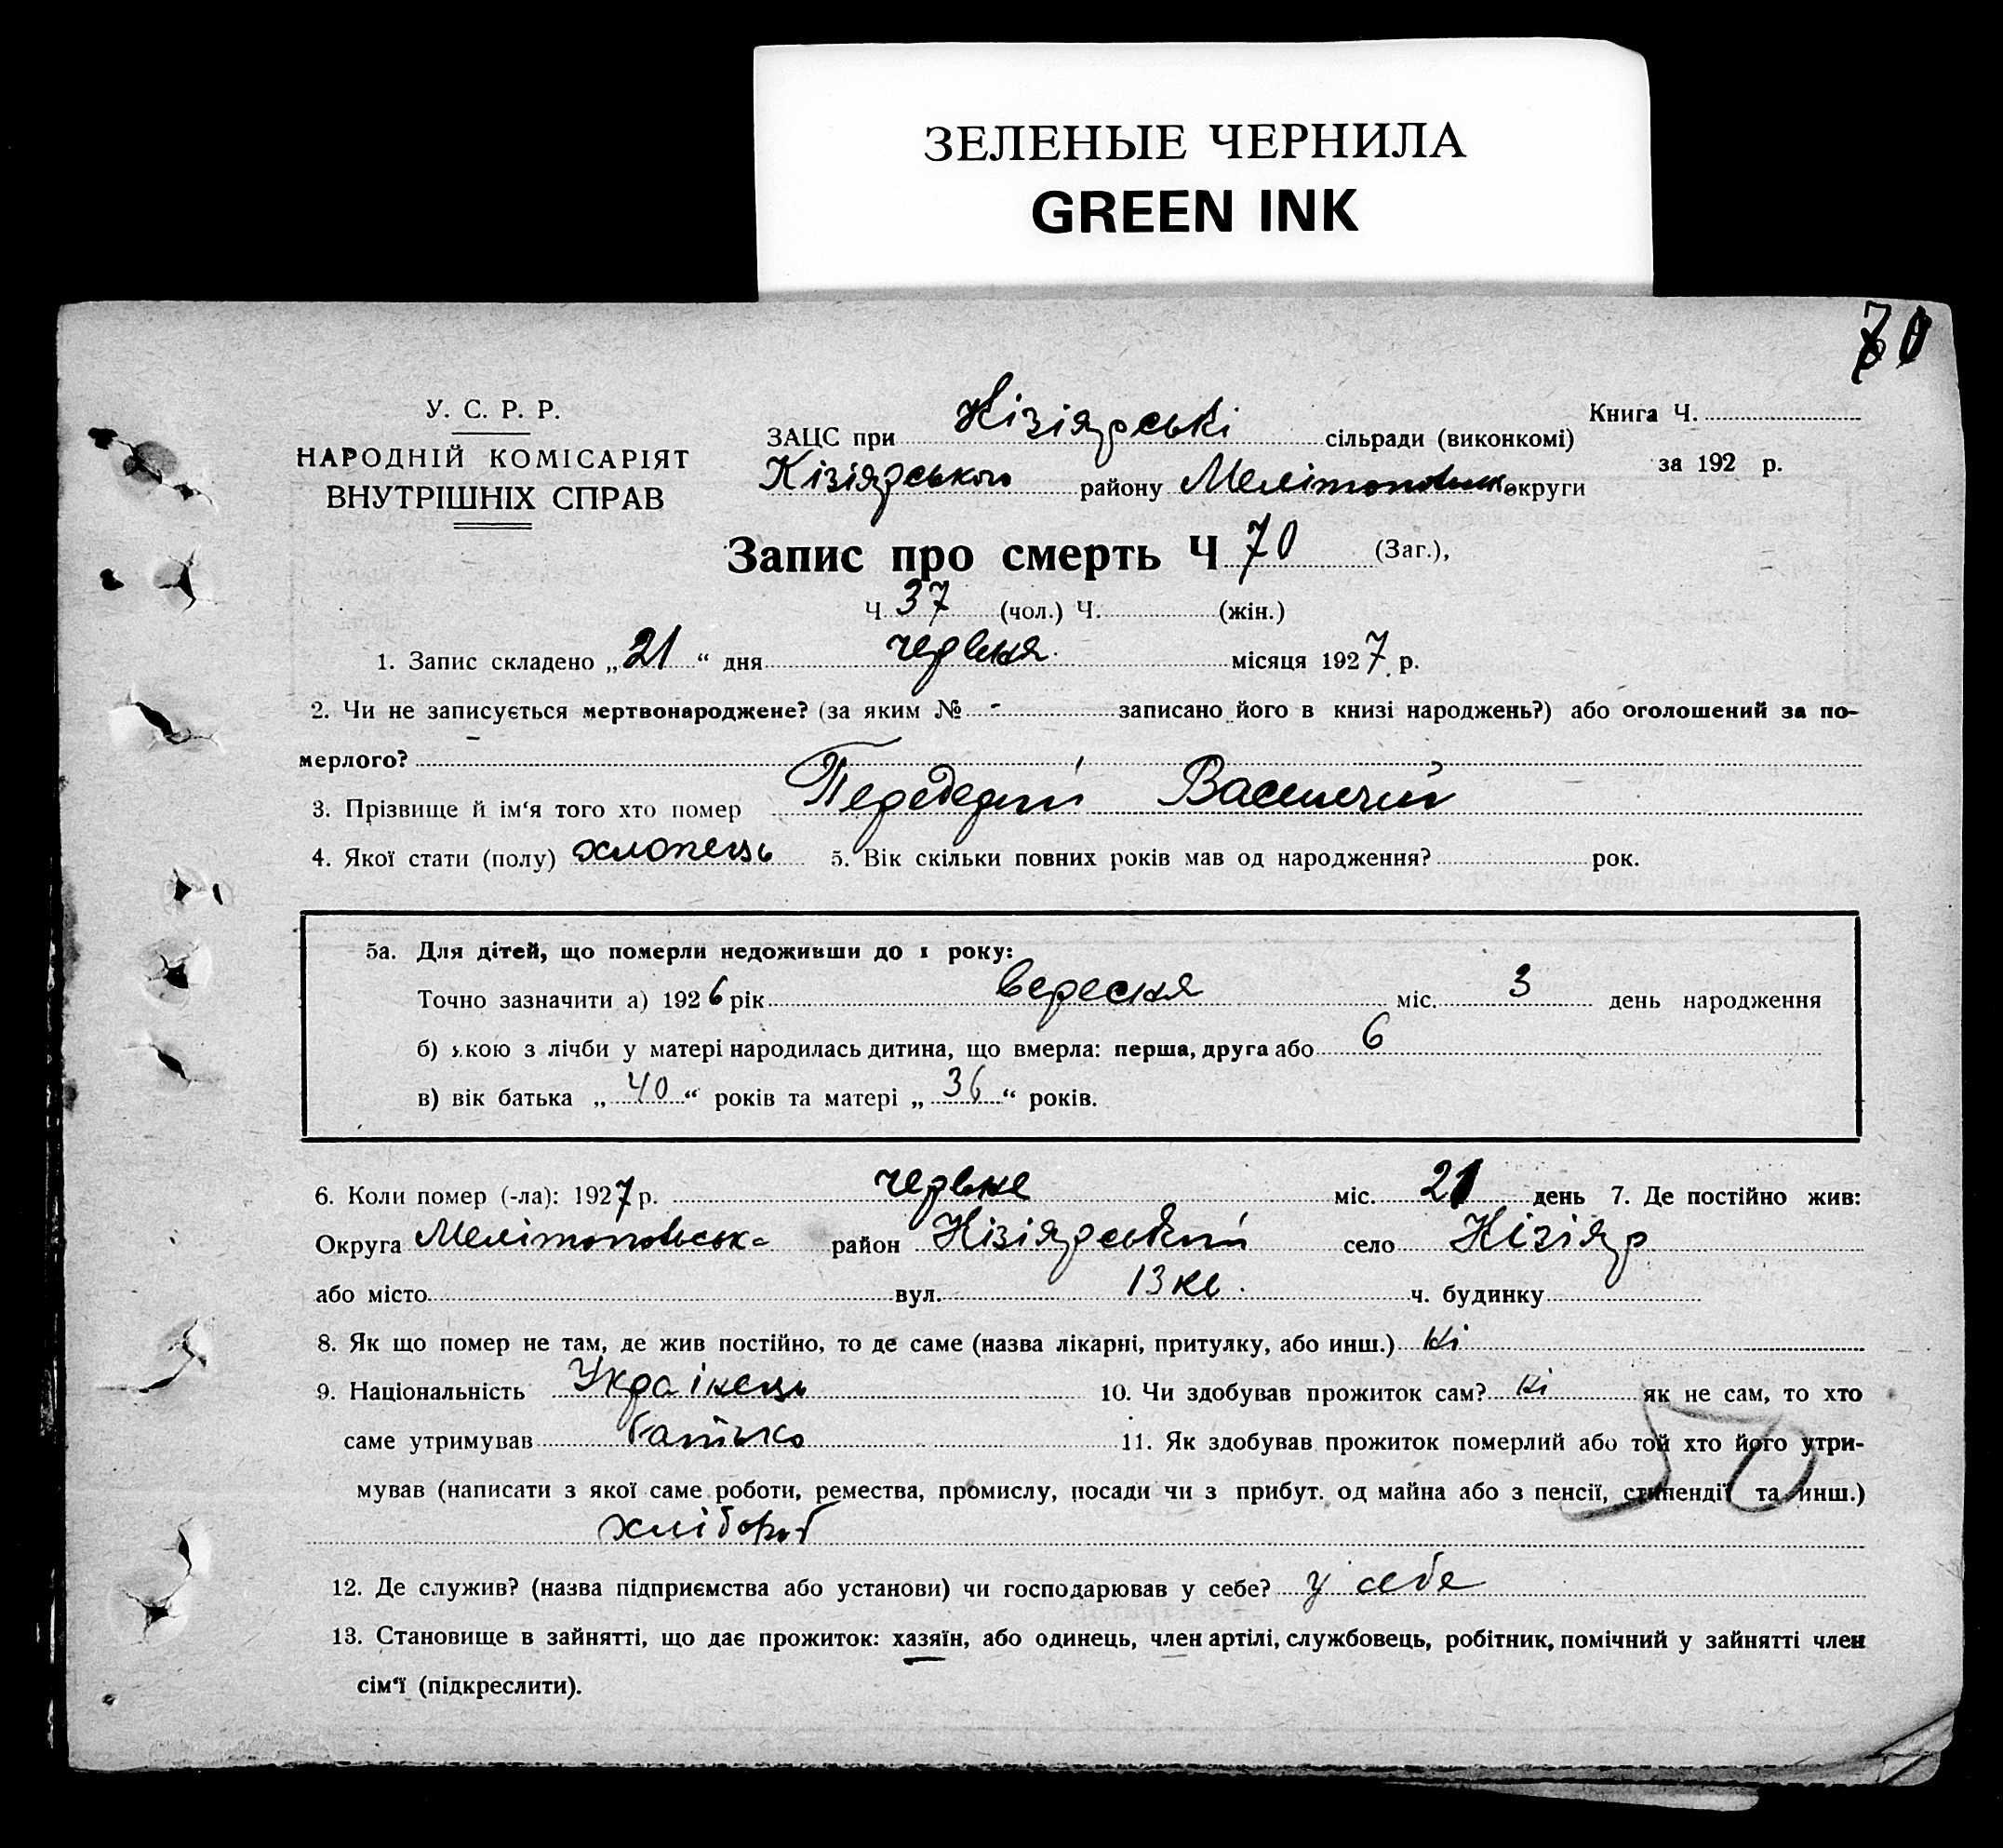 ЗЕЛЕНЫЕ ЧЕРНИЛА
GREEN INK
У. С. Р. Р.
НАРОДНІЙ КОМІСАРІЯТ
ВНУТРІШНІХ СПРАВ
ЗАЦС при Кізіярські сільради (виконкомі)
Книга Ч.
Кізіярського району округи
за 192 р.
Запис про смерть Ч 70 (Заг.),
Ч 37 (чол.) Ч. (жін.)
1. Запис складено „21“ дня червня місяця 1927 р.
2. Чи не записується мертвонароджене? (за яким № - записано його в книзі народжень?) або оголошений за по-
мерлого?
3. Прізвище й ім‘я того хто помер Передерий
4. Якої стати (полу) хлопець 5. Вік скільки повних років мав од народження? рок.
5а. Для дітей, що померли недоживши до 1 року:
Точно зазначити а) 1926 рік вересня міс. 3 день народження
б) якою з лічби у матері народилась дитина, що вмерла: перша, друга або 6
в) вік батька „40“ років та матері „36“ років.
6. Коли помер (-ла): 1927 р. червне міс. 21 день 7. Де постійно жив:
Округа Мелітопольська район Кізіярський село Кізіяр
або місто вул. 13 кв. ч. будинку
8. Як що помер не там, де жив постійно, то де саме (назва лікарні, притулку, або инш.) ні
9. Національність Українець 10. Чи здобував прожиток сам? ні як не сам, то хто
саме утримував батько 11. Як здобував прожиток померлий або той хто його утри-
мував (написати з якої саме роботи, ремества, промислу, посади чи з прибут. од майна або з пенсії, стипендії та инш.)
хлібороб
12. Де служив? (назва підприємства або установи) чи господарював у себе? у себе
13. Становище в зайнятті, що дає прожиток: хазяїн, або одинець, член артілі, службовець, робітник, помічний у зайнятті член
сім‘ї (підкреслити).